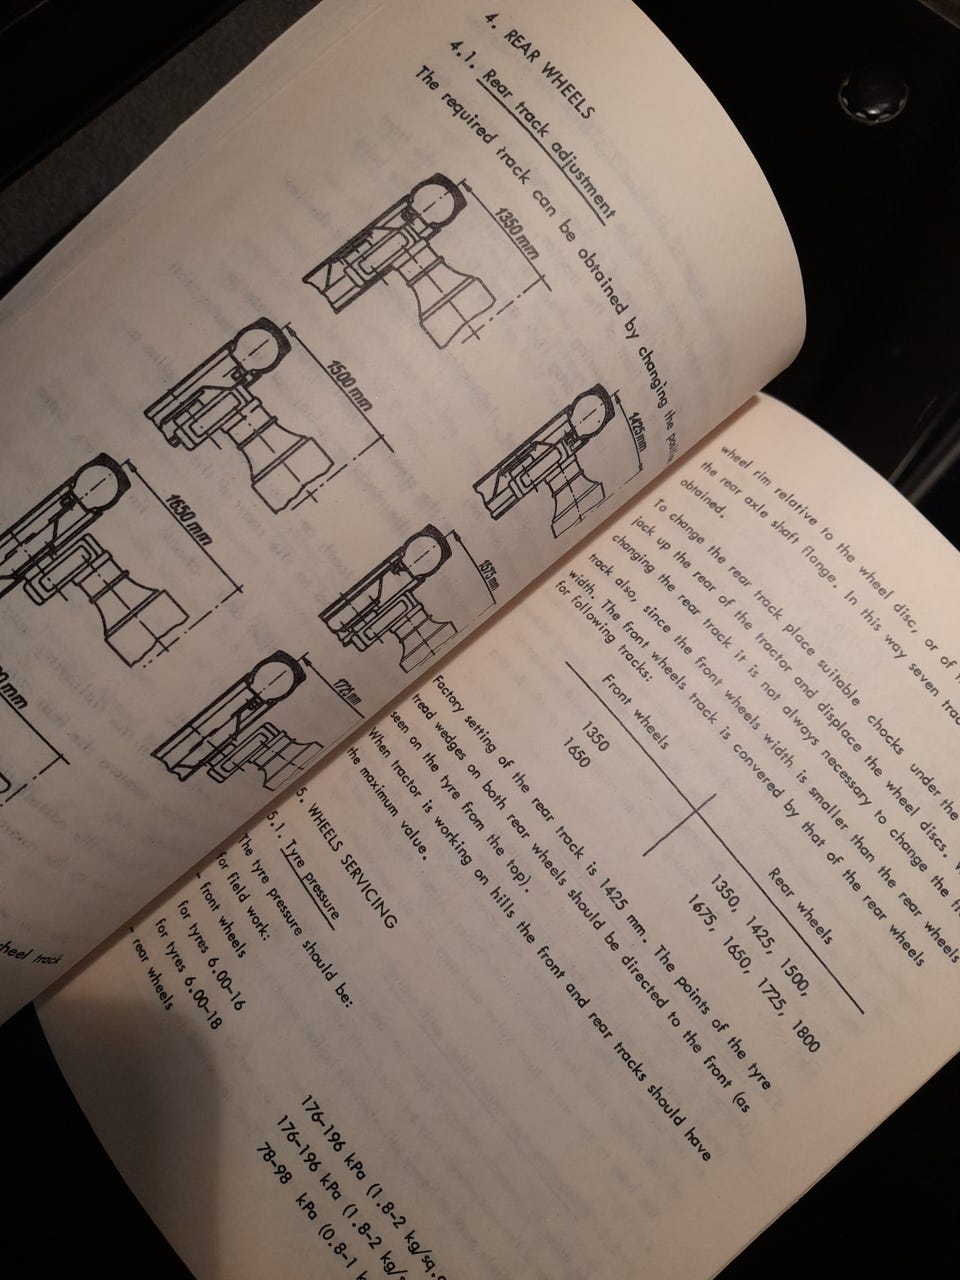 4. REAR WHEELS
4.1. Rear track adjustment
The required track can be obtained by changing the
1350 mm
1500 mm
1425 mm
1650 mm
1575 mm
1725 mm
00 mm
heel track
wheel rim relative to the wheel disc, or of
the rear axle shaft flange. In this way seven
obtained.
To change the rear track place suitable chocks under the
jack up the rear of the tractor and displace the wheel discs.
changing the rear track it is not always necessary to change the
track also, since the front wheels width is smaller than the rear wheels
width. The front wheels track is convered by that of the rear wheels
for following tracks:
Front wheels Rear wheels
1350 1350, 1425, 1500,
1650 1675, 1650, 1725, 1800
Factory setting of the rear track is 1425 mm. The points of the tyre
tread wedges on both rear wheels should be directed to the front (as
seen on the tyre from the top).
When tractor is working on hills the front and rear tracks should have
the maximum value.
5. WHEELS SERVICING
5.1. Tyre pressure
The tyre pressure should be:
for field work:
- front wheels
for tyres 6.00-16 176-196 kPa (1.8-2 kg/sq.c
for tyres 6.00-18 176-196 kPa (1.8-2 kg/s
- rear wheels 78-98 kPa (0.8-1 k